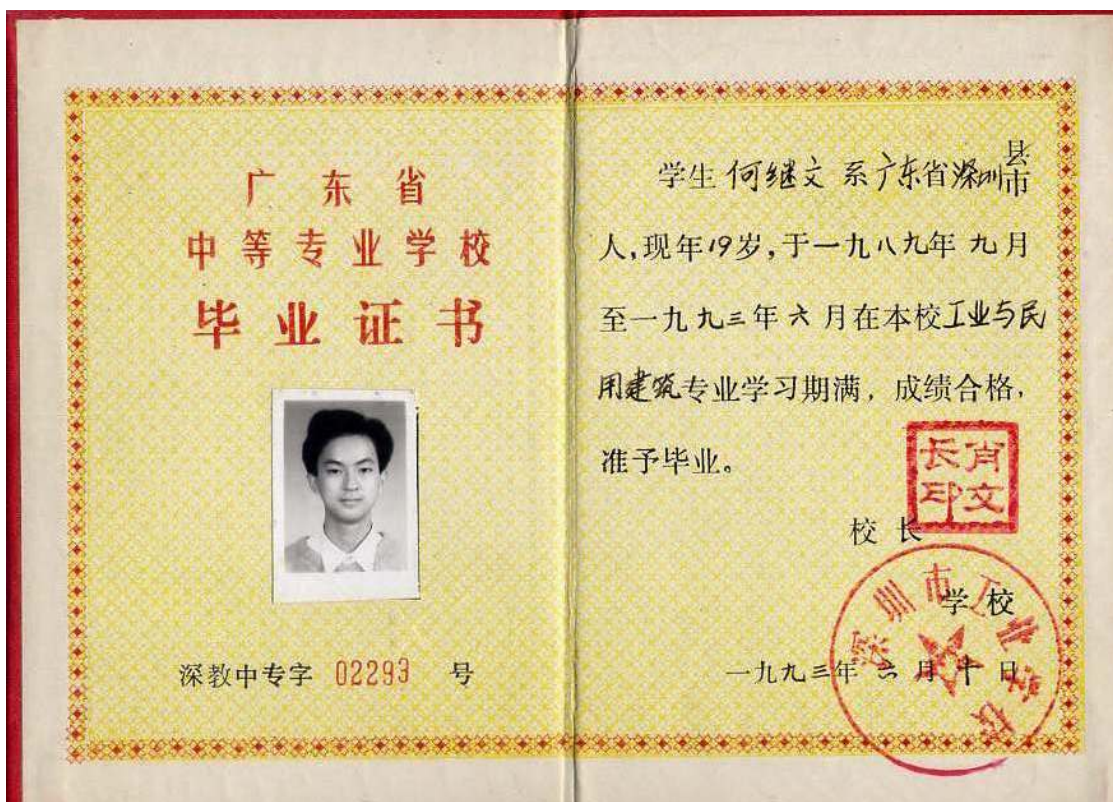 广东省
中等专业学校
毕业证书
深教中专字 02293 号
学生 何继文 系广东省深圳县市
人,现年19岁,于一九八九年九月
至一九九三年六月在本校工业与民
用建筑专业学习期满，成绩合格，
准予毕业。
肖文长印
校长
学校
深圳市工业学校
一九九三年六月十日